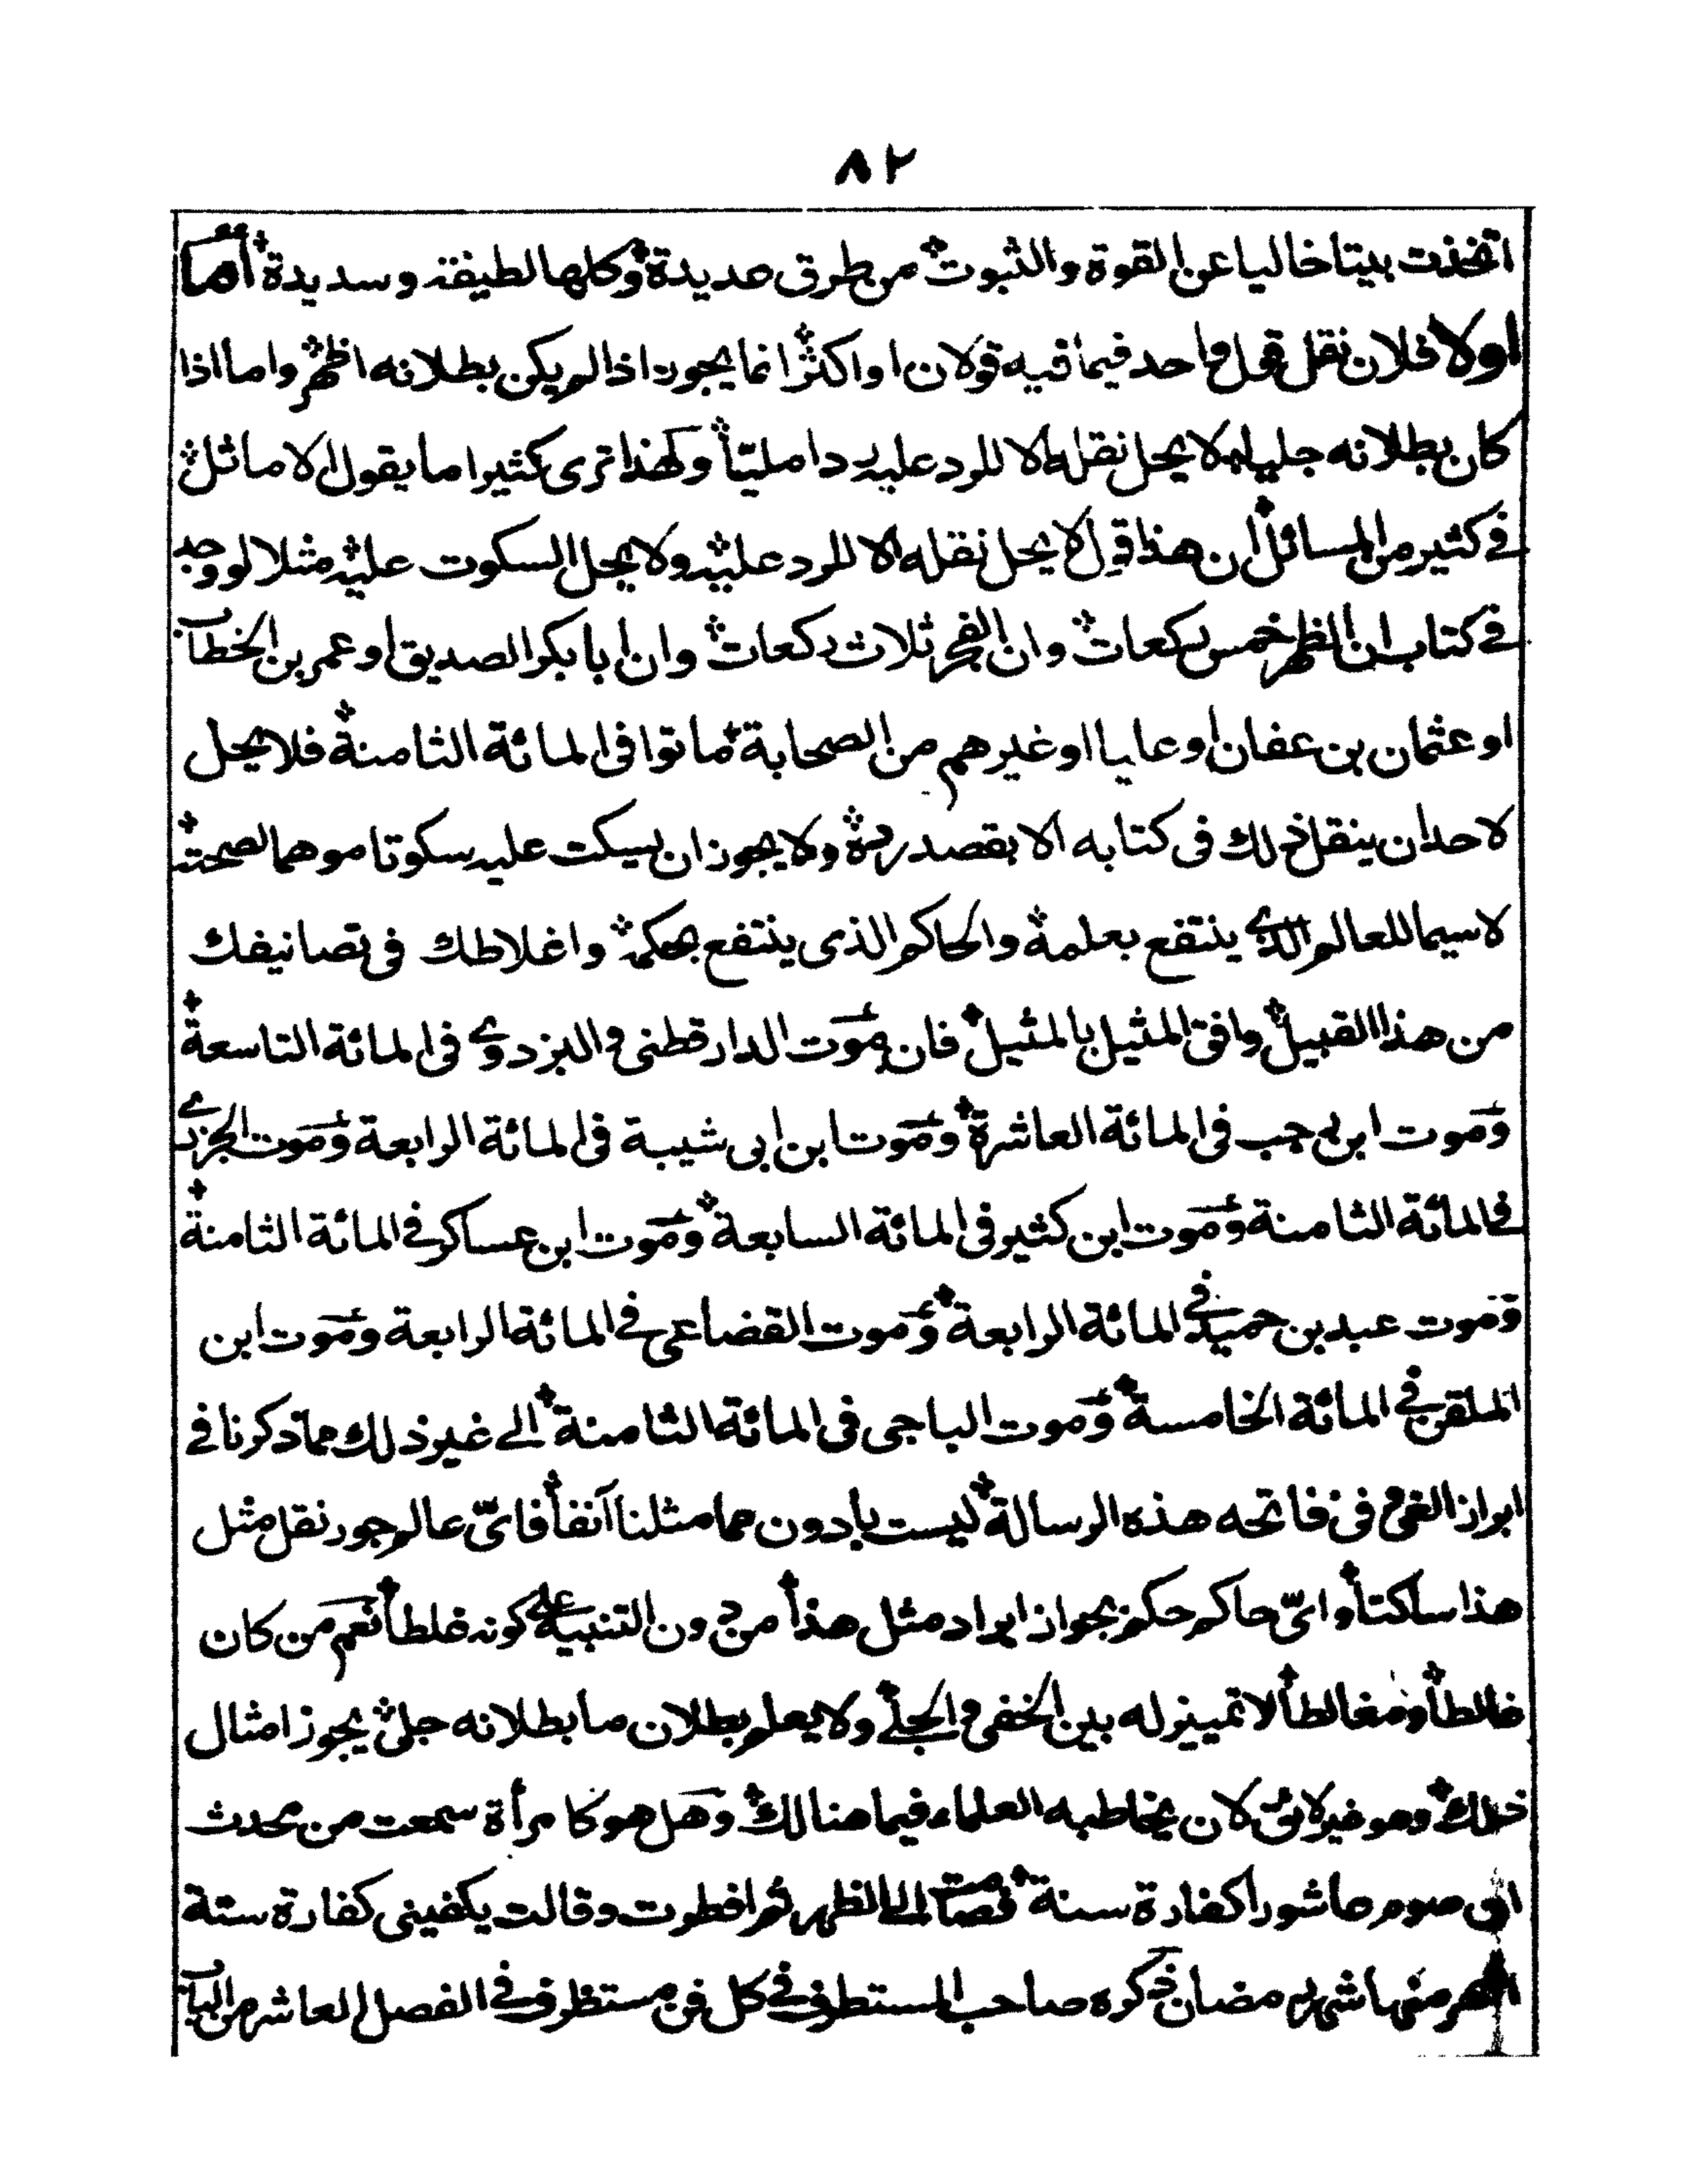 ٨٢
اتخذت بيتا خاليا عن القوة والثبوت من طرق عديدة وكلها لطيفة وسديدة أما
اولا فلان نقل قول واحد فيما فيه قولان او اكثر انما يجوز اذا لم يكن بطلانه اظهر واما اذا
كان بطلانه جليا لا يحل نقله الا للرد عليه ردا مليّا ولهذا ترى كثيرا ما يقول الاماثل
في كثير من المسائل ان هذا قول لا يحل نقله الا للرد عليه ولا يحل السكوت عليه مثلا لو وجد
في كتاب ان الظهر خمس ركعات وان الفجر ثلاث ركعات وان ابا بكر الصديق او عمر بن الخطاب
او عثمان بن عفان او عليا او غيرهم من الصحابة ماتوا في المائة الثامنة فلا يحل
لاحد ان ينقل ذلك في كتابه الا بقصد رده ولا يجوز ان يسكت عليه سكوتا موهما لصحته
لا سيما للعالم الذي ينتفع بعلمه والحاكم الذى ينتفع بحكمه واغلاطك في تصانيفك
من هذا القبيل وافق المثيل بالمثيل فان موت الدارقطنى والبزدوي في المائة التاسعة
وموت ابن رجب في المائة العاشرة وموت ابن ابى شيبة في المائة الرابعة وموت الجزري
في المائة الثامنة وموت ابن كثير في المائة السابعة وموت ابن عساكر في المائة الثامنة
وموت عبد بن حميد في المائة الرابعة وموت القضاعى في المائة الرابعة وموت ابن
الملقن في المائة الخامسة وموت الباجى في المائة الثامنة الى غير ذلك مما ذكرنا في
ابراز الغى وفى فاتحه هذه الرسالة ليست بادون مما مثلنا آنفا فاىّ عالم جوز نقل مثل
هذا ساكتا واىّ حاكم حكم بجواز ايراد مثل هذا من دون التنبيه على كونه غلطا نعم من كان
غالطا ومغالطا لا تمييز له بين الخفى والجلى ولا يعلم بطلان ما بطلانه جلى يجوز امثال
ذلك وهو غير لائق لان يخاطبه العلماء فيما هنالك وهل هو كامرأة سمعت من محدث
ان صوم عاشورا كفارة سنة فصامت الى الظهر ثم افطرت وقالت يكفينى كفارة ستة
اشهر منها شهر رمضان ذكره صاحب المستطرف في كل فن مستظرف في الفصل العاشر من الباب